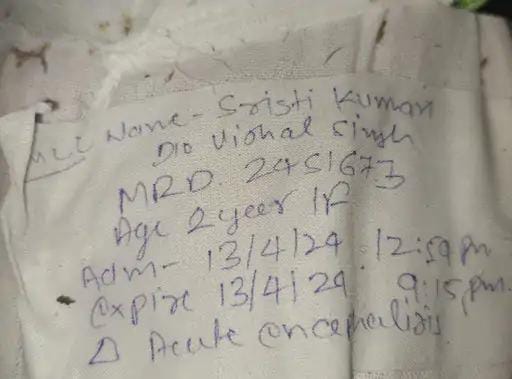 MLC Name- Sristi Kumari
D/o Vishal Singh
MRD. 2451673
Age 2 year /F
Adm- 13/4/24. 12:59 pm
Expire 13/4/24 9:15 pm.
Δ Acute encephalitis